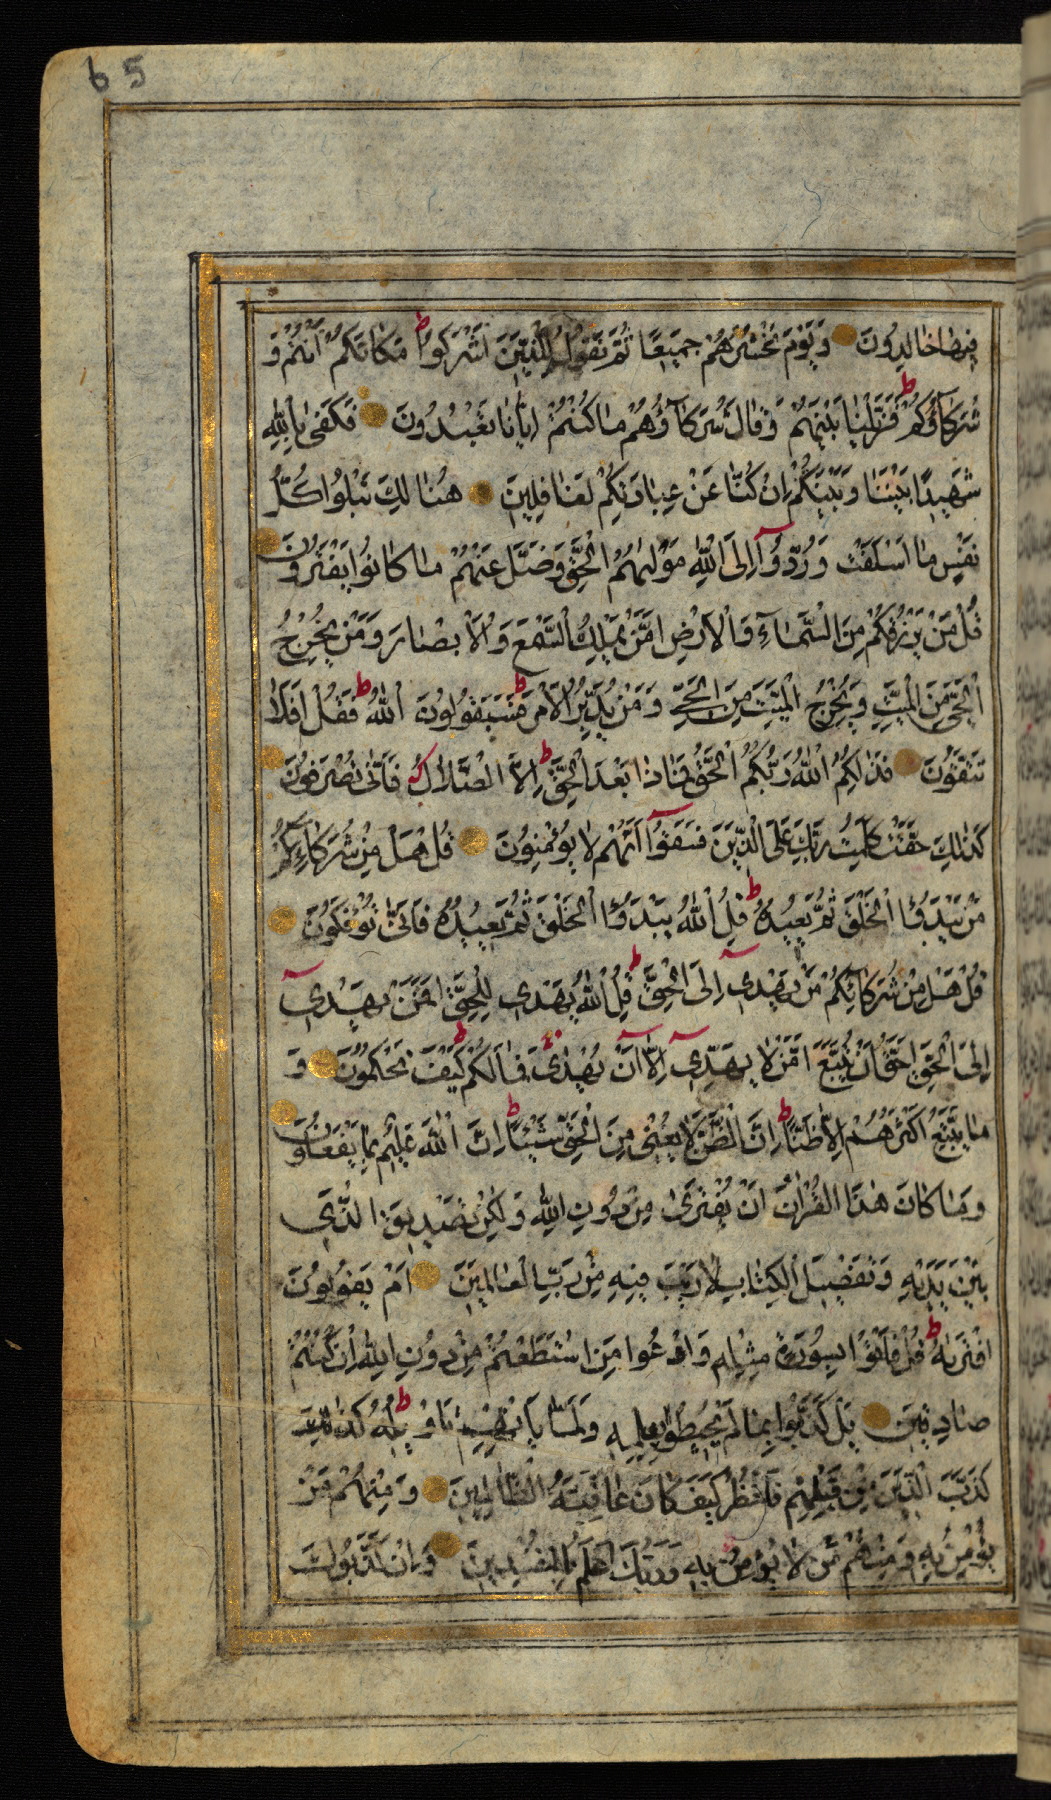 65
فيها خالدون ويوم نحشرهم جميعا ثم نقول للذين اشركوا ط مكانكم انتم و
شركاؤكم ط فزيلنا بينهم وقال شركاؤهم ما كنتم ايانا تعبدون فكفى بالله
شهيدا بيننا وبينكم ان كنا عن عبادتكم لغافلين هنالك تبلوا كل
نفس ما اسلفت وردوا الى الله موليهم الحق وضل عنهم ما كانوا يفترون
قل من يرزقكم من السماء والارض امن يملك السمع والابصار ومن يخرج
الحي من الميت ويخرج الميت من الحي ومن يدبر الامر ط فسيقولون الله ط فقل افلا
تتقون فذلكم الله ربكم الحق فماذا بعد الحق ط الا الضلال فانى تصرفون
كذلك حقت كلمت ربك على الذين فسقوا انهم لا يؤمنون قل هل من شركائكم
من يبدؤا الخلق ثم يعيده ط قل الله يبدؤا الخلق ثم يعيده فانى تؤفكون
قل هل من شركائكم من يهدي الى الحق ط قل الله يهدي للحق افمن يهدي
الى الحق احق ان يتبع امن لا يهدي الا ان يهدى فما لكم كيف تحكمون و
ما يتبع اكثرهم الا ظنا ط ان الظن لا يغني من الحق شيئا ط ان الله عليم بما يفعلون
وما كان هذا القران ان يفترى من دون الله ولكن تصديق الذي
بين يديه وتفصيل الكتاب لا ريب فيه من رب العالمين ام يقولون
افتريه ط قل فاتوا بسورة مثله وادعوا من استطعتم من دون الله ان كنتم
صادقين بل كذبوا بما لم يحيطوا بعلمه ولما ياتهم تاويله ط كذلك
كذب الذين من قبلهم فانظر كيف كان عاقبة الظالمين ومنهم من
يؤمن به ومنهم من لا يؤمن به وربك اعلم بالمفسدين وان كذبوك